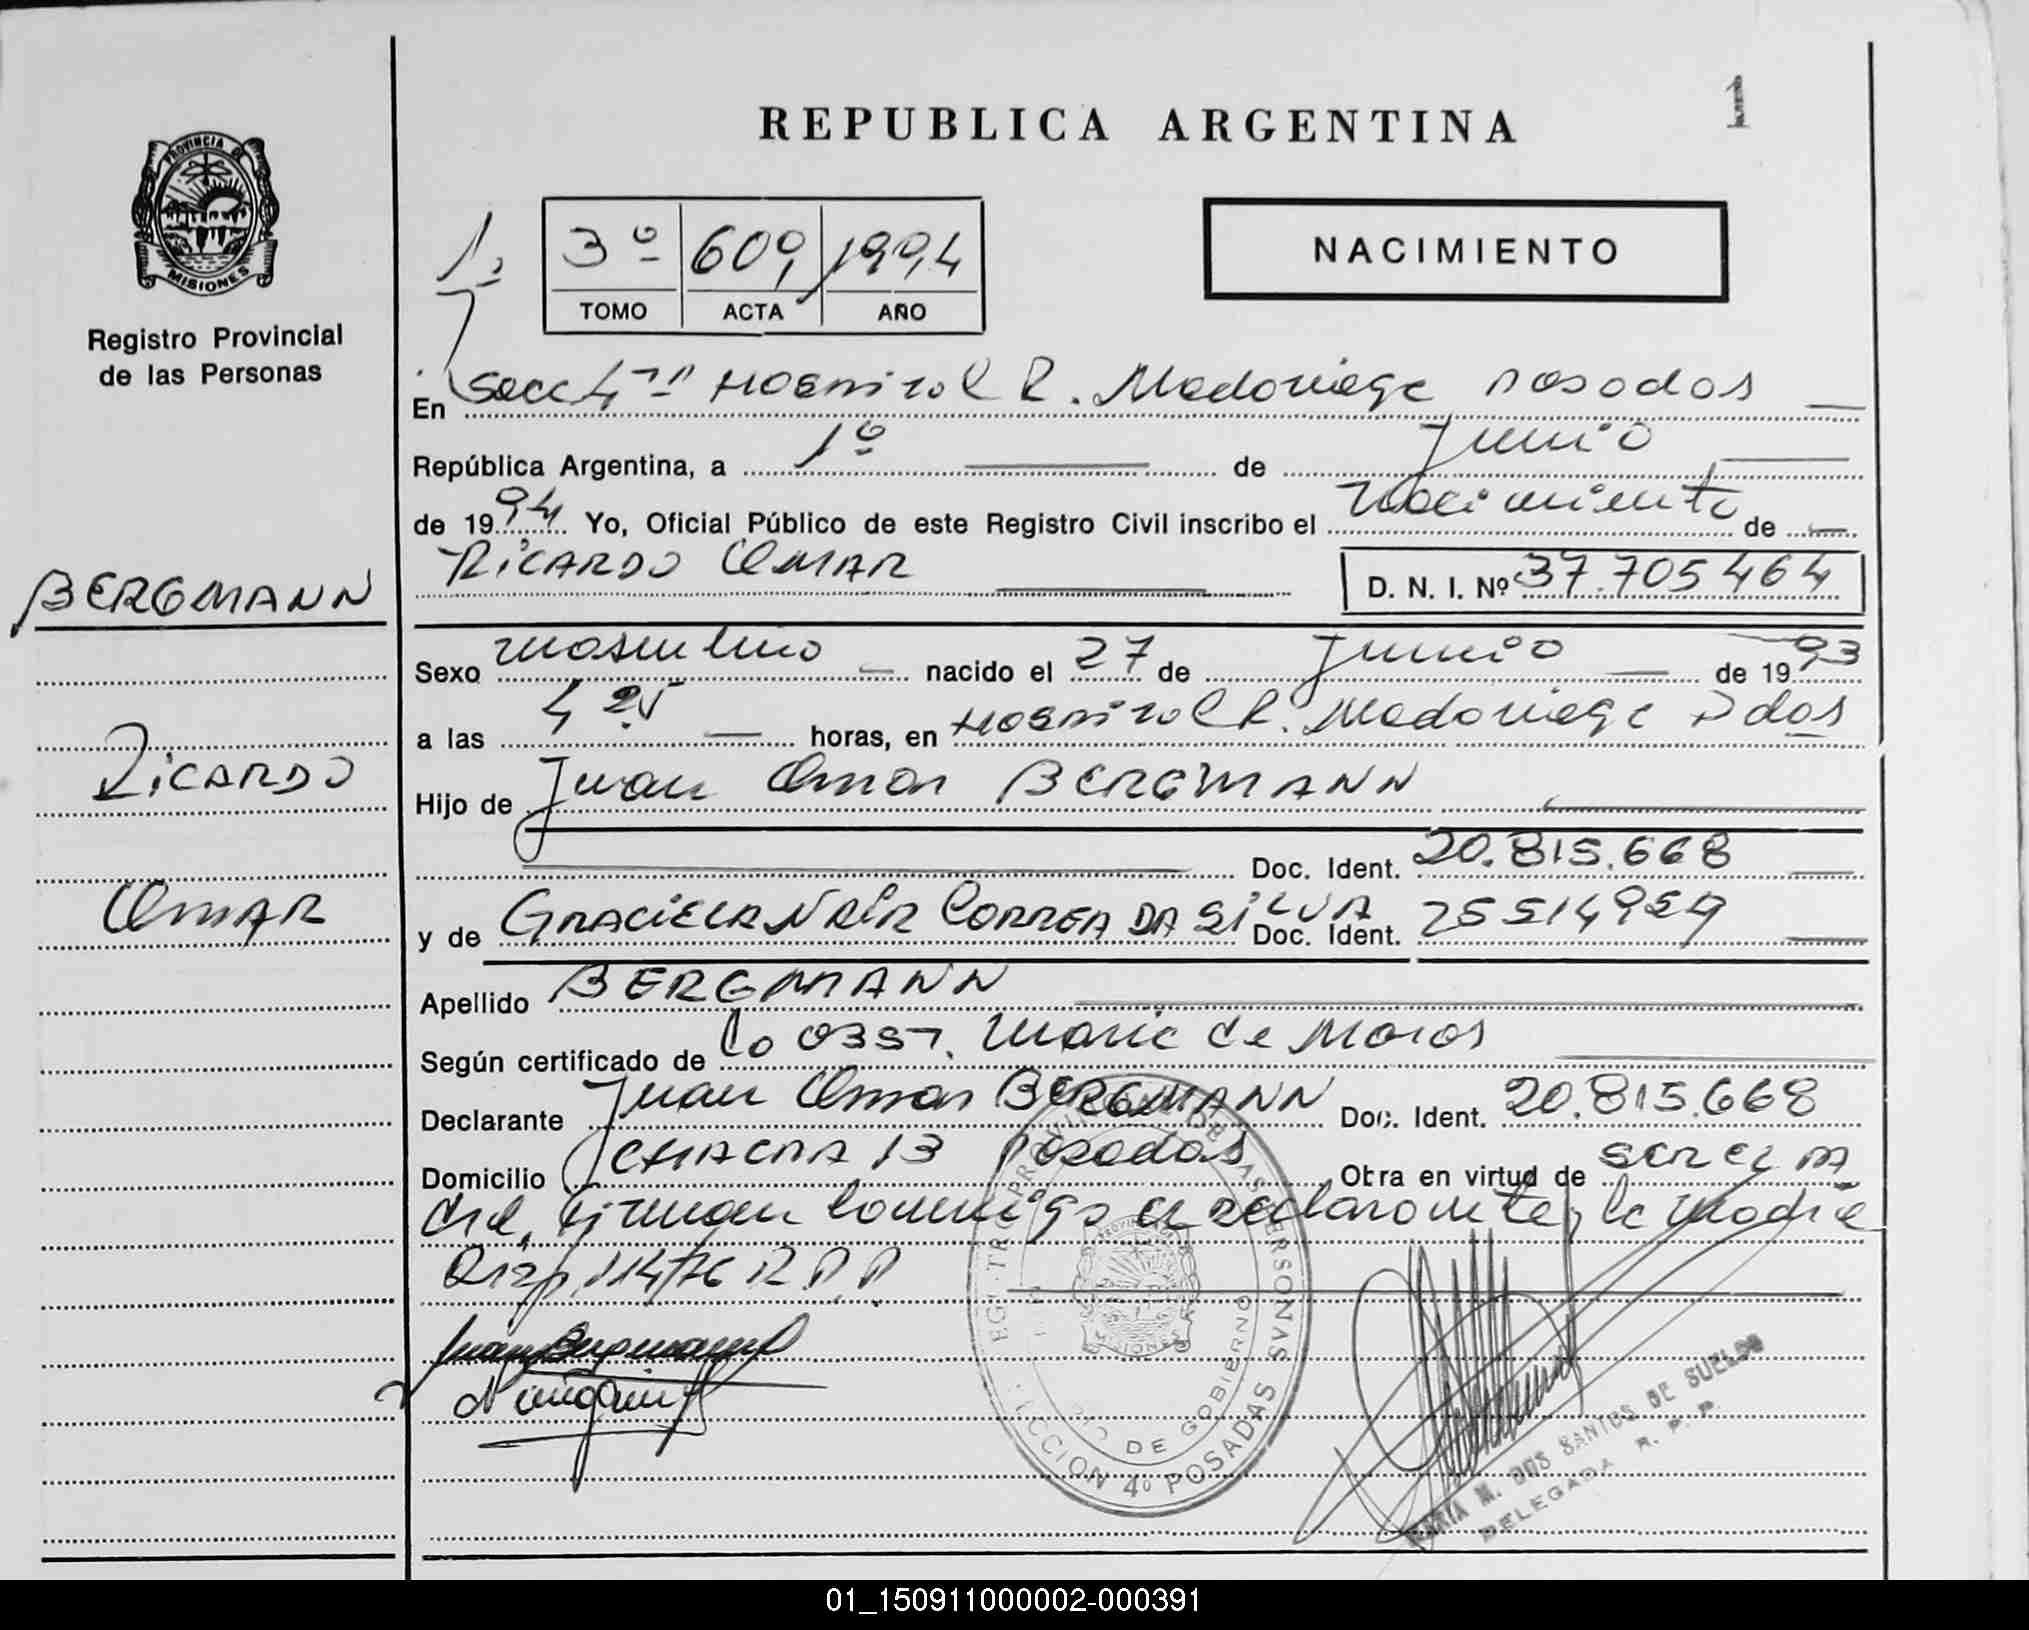 REPUBLICA ARGENTINA
1
PROVINCIA DE
MISIONES
Registro Provincial
de las Personas
3º 609 1994
TOMO ACTA AÑO
NACIMIENTO
En Secc 4ta Hospital R. Madariaga Posadas
República Argentina, a 1º de Junio
de 1994 Yo, Oficial Público de este Registro Civil inscribo el Nacimiento de
RICARDO OMAR D. N. I. Nº 37.705464
BERGMANN
Sexo masculino nacido el 27 de Junio de 1993
a las 4 25 horas, en Hospital R. Madariaga Pdas
RICARDO
Hijo de Juan Omar BERGMANN
Doc. Ident. 20.815.668
OMAR
y de GRACIELA NAIR CORREA DA SILVA Doc. Ident. 25514959
Apellido BERGMANN
Según certificado de La Obst. Maria de Moras
Declarante Juan Omar BERGMANN Doc. Ident. 20.815.668
Domicilio CHACRA 13 Posadas Otra en virtud de
firman conmigo el declarante, la madre
Disp. 114/76 R P P
DE GOBIERNO
SECCION 4º POSADAS
MARIA M. DOS SANTOS DE SUELDO
DELEGADA R. P. P.
01_150911000002-000391